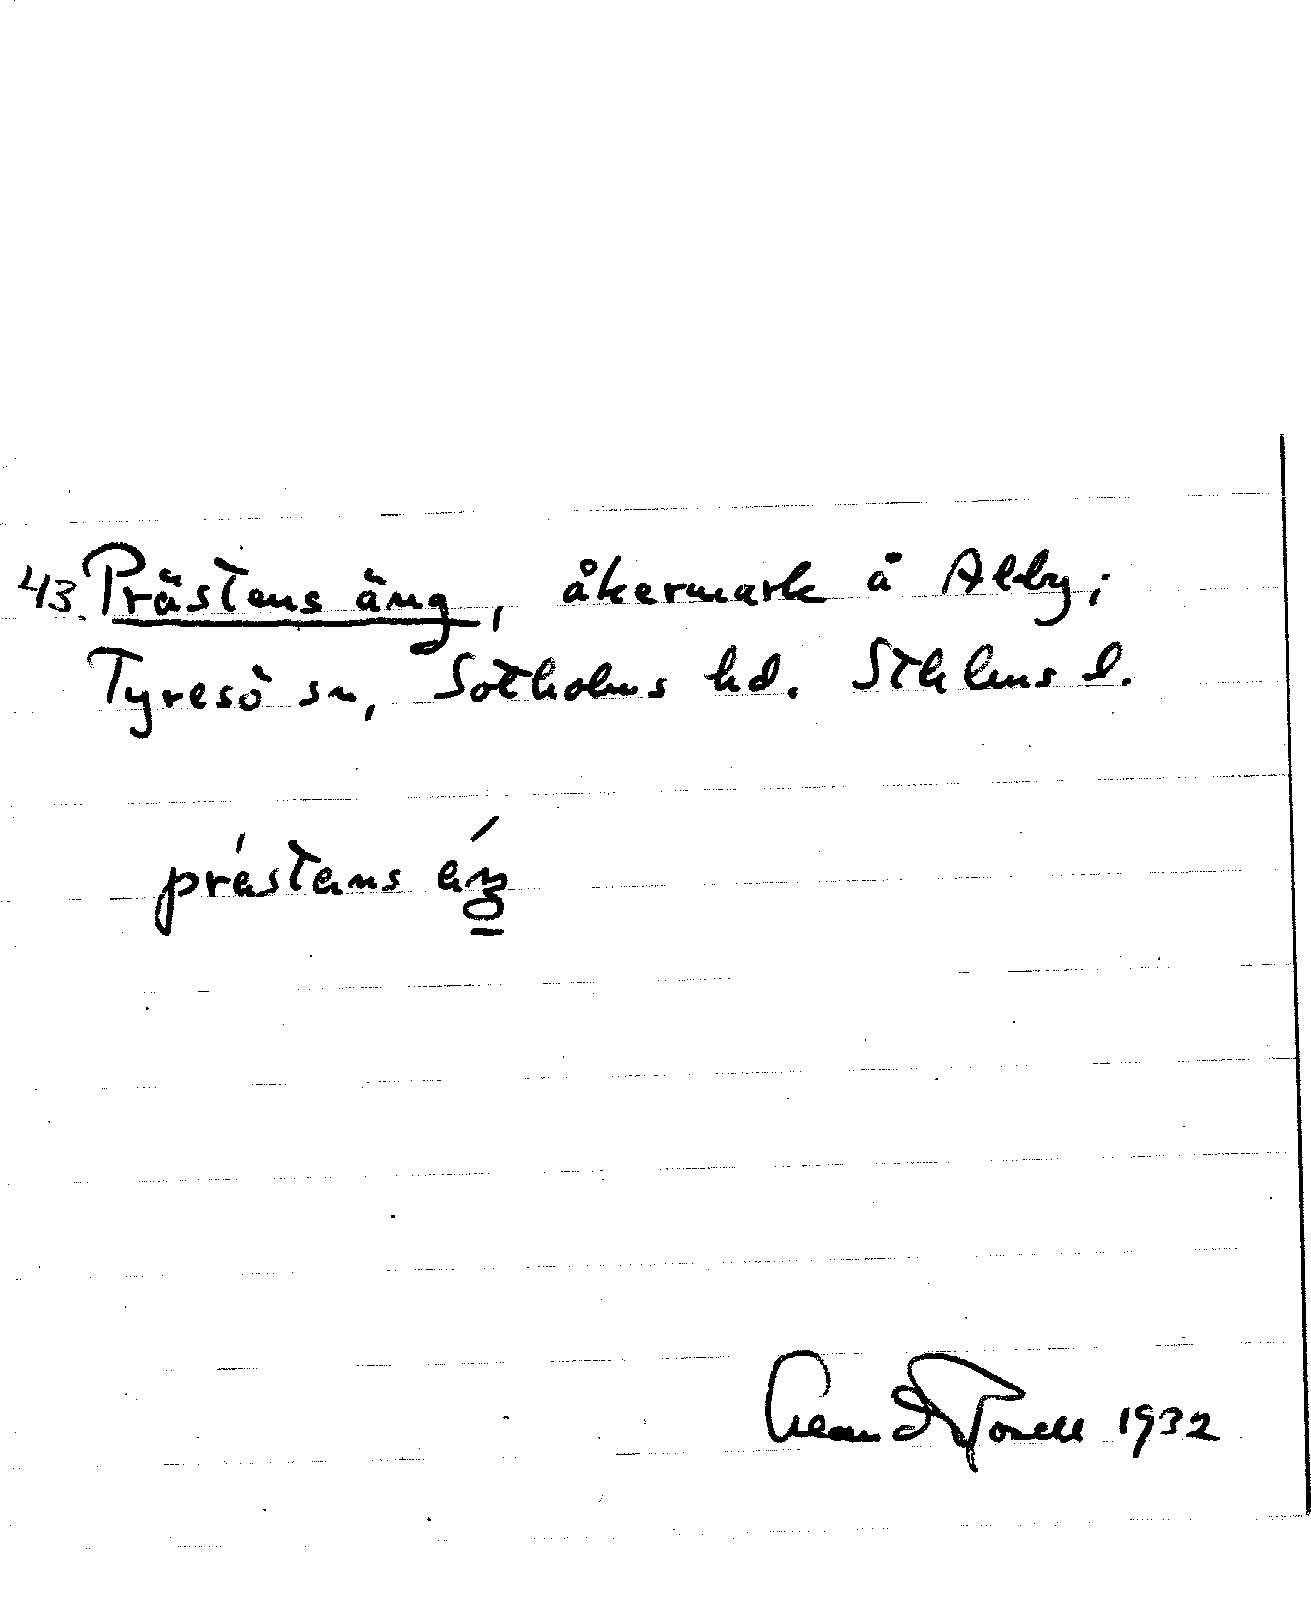 43. Prästens äng, åkermark å Alby;
Tyresö sn, Sotholms hd. Sthlms l.
prästens äŋ
1932